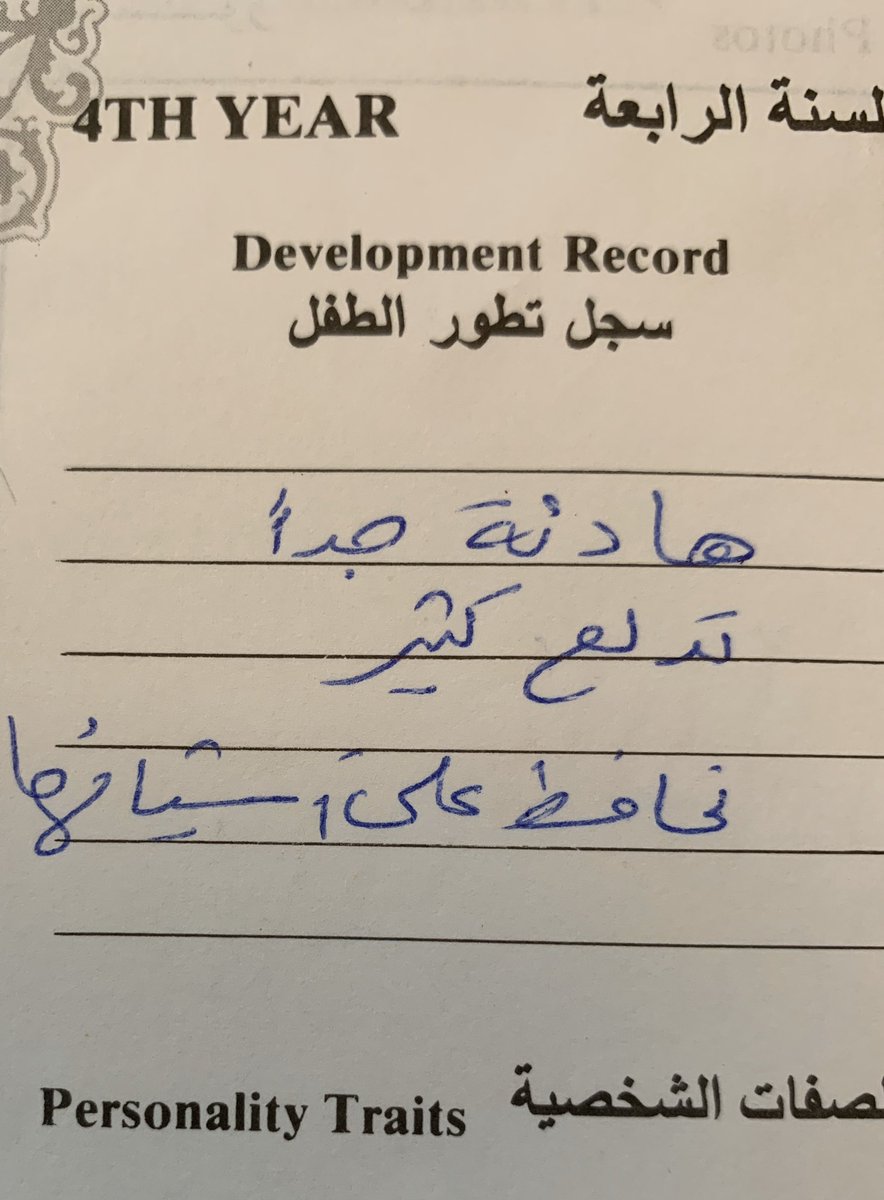 Photos
4TH YEAR لسنة الرابعة
Development Record
سجل تطور الطفل
هادئة جداً
تدلع كثير
تحافظ على أشيائها
Personality Traits لصفات الشخصية